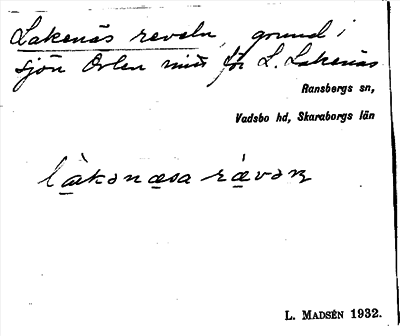 Lakenäs reveln, grund i
sjön Örlen mitt för L. Lakenäs
Ransbergs sn,
Vadsbo hd, Skaraborgs län
làkənæsa rævəɳ
L. MADSÉN 1932.